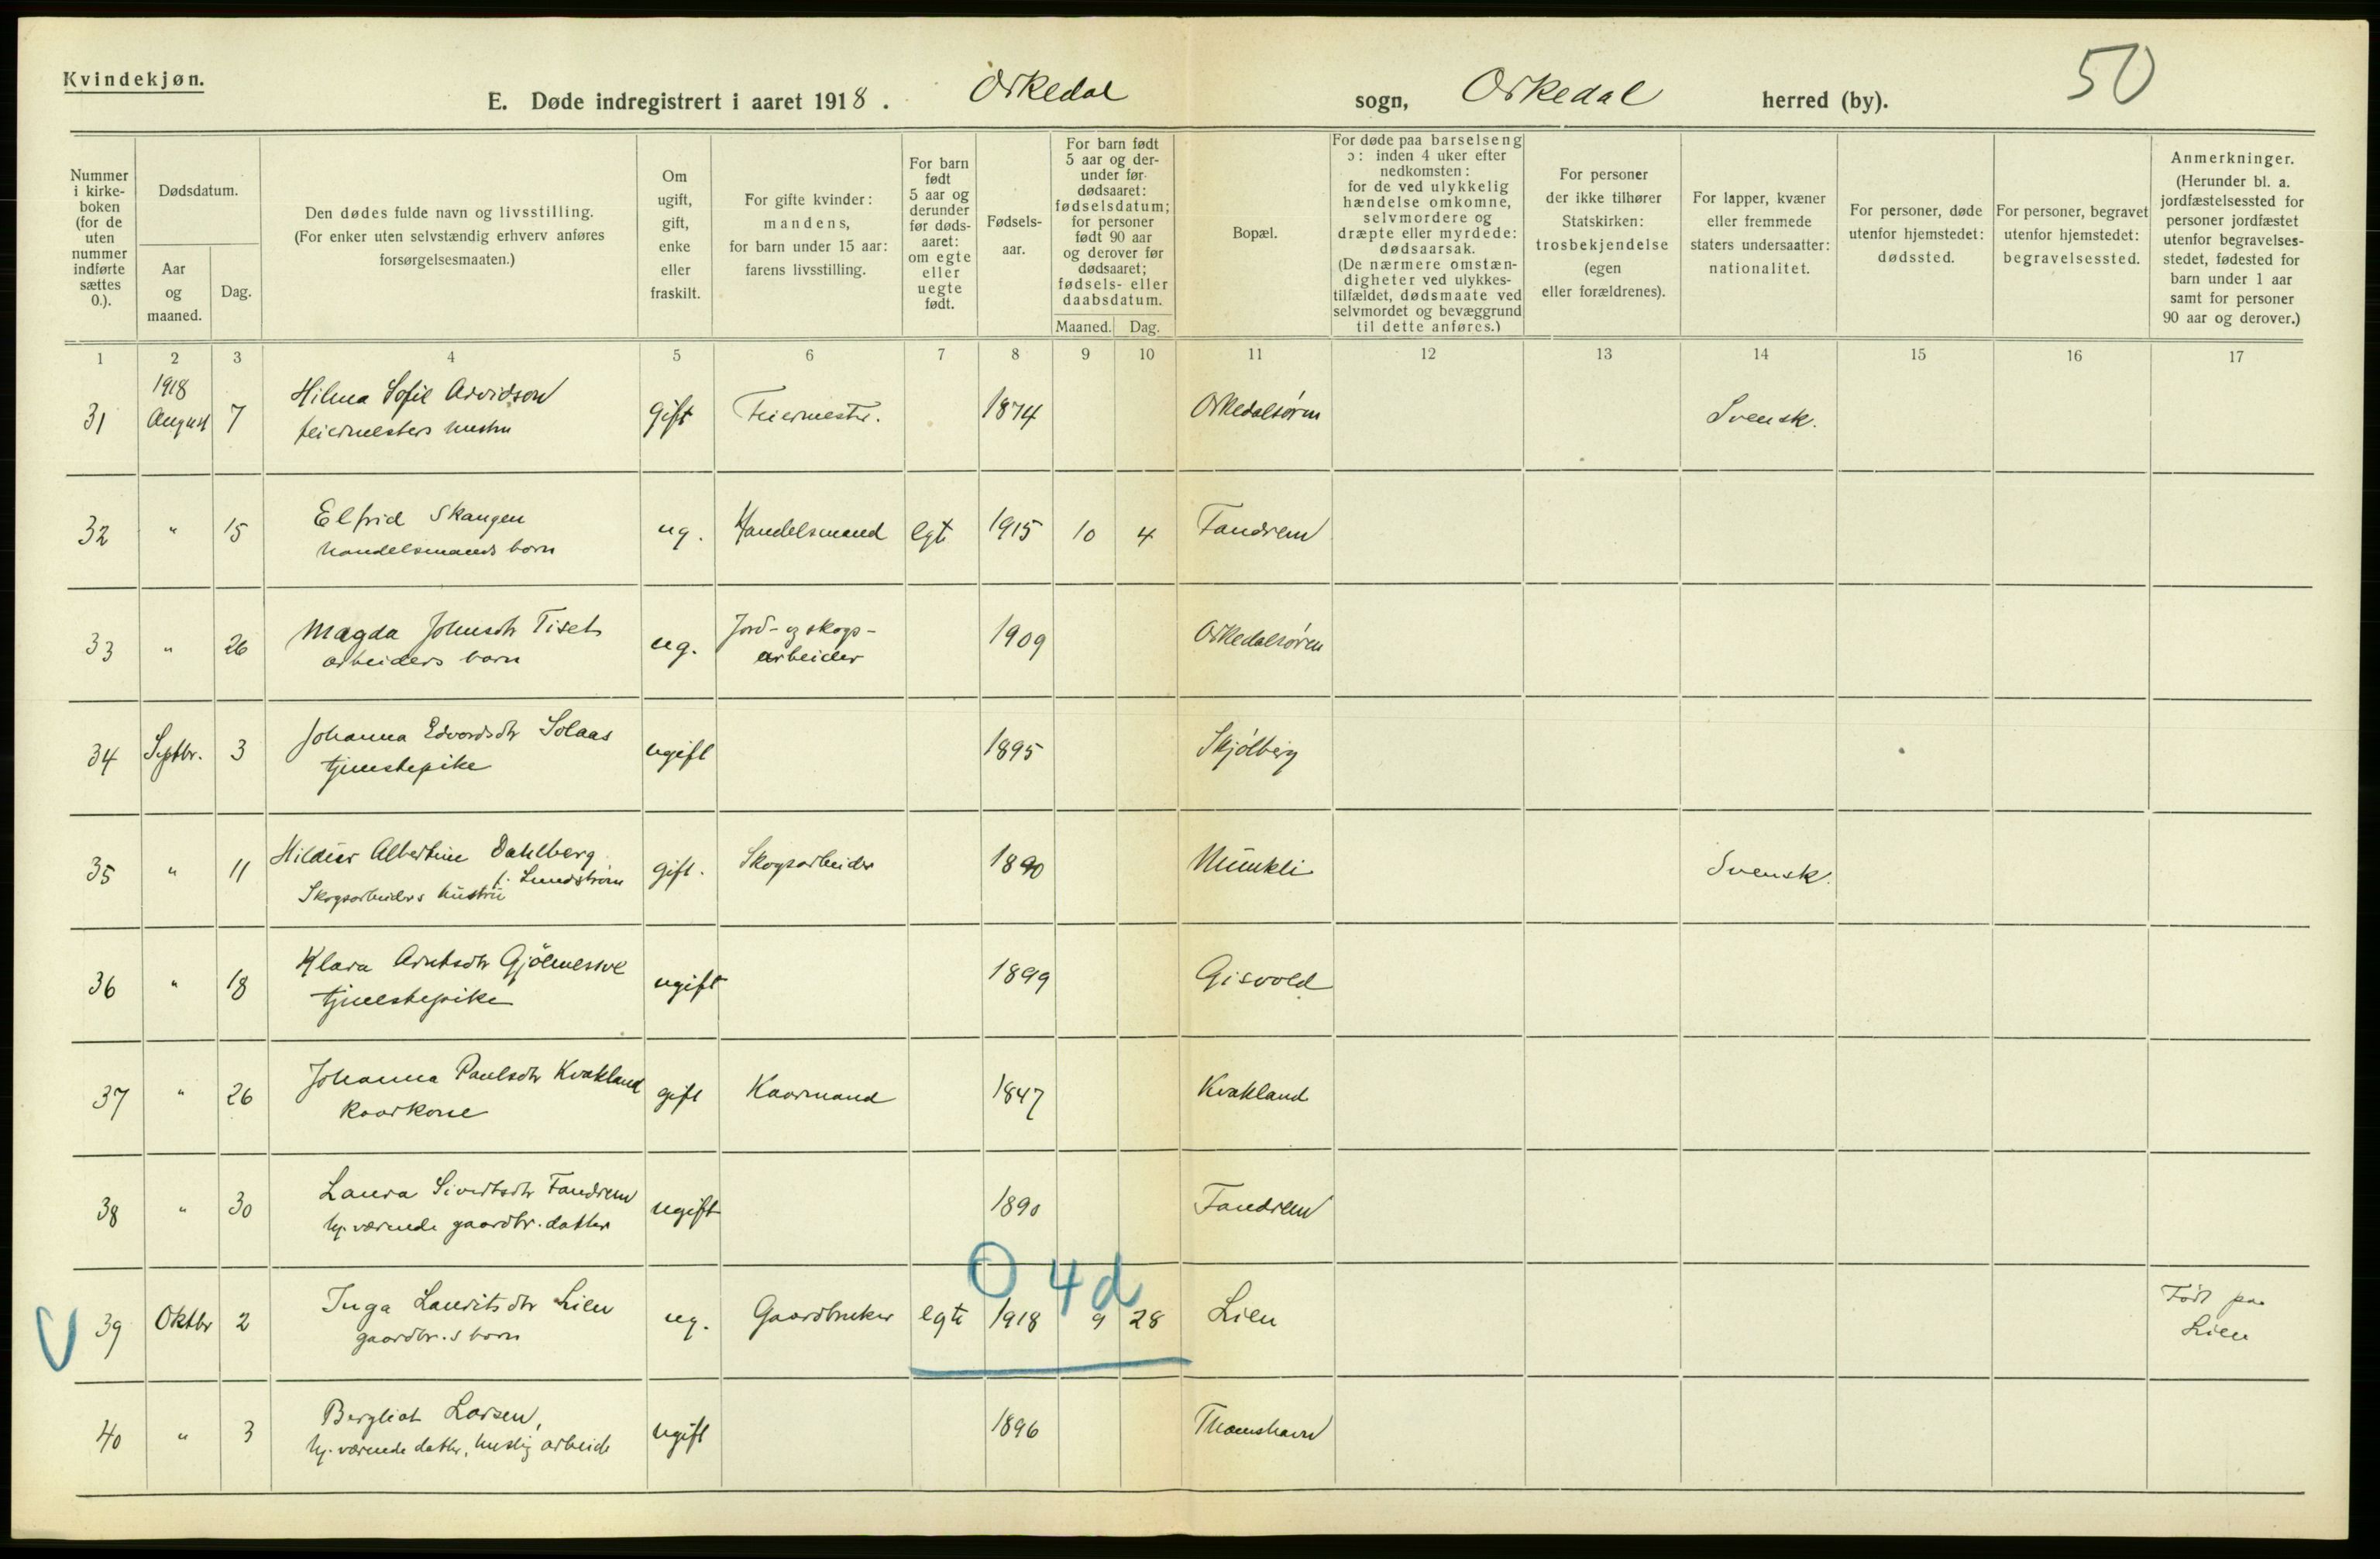 Kvindekjøn.
50
E. Døde indregistrert i aaret 1918. Orkedal sogn, Orkedal herred (by).
Nummer i kirke-boken (for de uten nummer indførte sættes 0.).
Dødsdatum.
Aar og maaned.
Dag.
Den dødes fulde navn og livsstilling.
(For enker uten selvstændig erhverv anføres forsørgelsesmaaten.)
Om ugift, gift, enke eller fraskilt.
For gifte kvinder: mandens, for barn under 15 aar: farens livsstilling.
For barn født 5 aar og derunder før døds-aaret: om egte eller uegte født.
Fødsels-aar.
For barn født 5 aar og der-under før dødsaaret: fødselsdatum; for personer født 90 aar og derover før dødsaaret; fødsels- eller daabsdatum.
Maaned. Dag.
Bopæl.
For døde paa barselseng ɔ: inden 4 uker efter nedkomsten: for de ved ulykkelig hændelse omkomne, selvmordere og dræpte eller myrdede: dødsaarsak. (De nærmere omstæn-digheter ved ulykkes-tilfældet, dødsmaate ved selvmordet og bevæggrund til dette anføres.)
For personer der ikke tilhører Statskirken: trosbekjendelse (egen eller forældrenes).
For lapper, kvæner eller fremmede staters undersaatter: nationalitet.
For personer, døde utenfor hjemstedet: dødssted.
For personer, begravet utenfor hjemstedet: begravelsessted.
Anmerkninger. (Herunder bl. a. jordfæstelsessted for personer jordfæstet utenfor begravelses-stedet, fødested for barn under 1 aar samt for personer 90 aar og derover.)
1 2 3 4 5 6 7 8 9 10 11 12 13 14 15 16 17
1918
31 August 7 Hilma Sofie Arvidson gift Feiermester. 1874 Orkedalsøren Svensk.
feiermesters hustru
32 " 15 Elfrid Skaugen ug. Handelsmand egt 1915 10 4 Fandrem
handelsmands barn
33 " 26 Magda Johnsdtr Tiset ug. Jord- og skogs- 1909 Orkedalsøren
arbeiders barn arbeider
34 Septbr. 3 Johanna Edvardsdtr Solaas ugift 1895 Skjølberg
tjenestepike
35 " 11 Hildur Albertine Dahlberg gift. Skogsarbeider 1890 Munkli Svensk.
f. Lundstrøm
Skogsarbeiders hustru
36 " 18 Klara Arntsdtr ugift 1899 Gisvold
tjenestepike
37 " 26 Johanna Paulsdtr Kvakland gift Kaarmand 1847 Kvakland
Kaarkone
38 " 30 Laura Sivertsdtr Fandrem ugift 1890 Fandrem
hj. værende gaardbr. datter
0 4d
39 Oktbr 2 Inga Lauritsdtr Lien ug. Gaardbruker egte 1918 9 28 Lien Født paa
gaardbr.s barn Lien
40 " 3 Bergliot Larsen, ugift 1896 Thamshavn
hj. værende datter, huslig arbeide